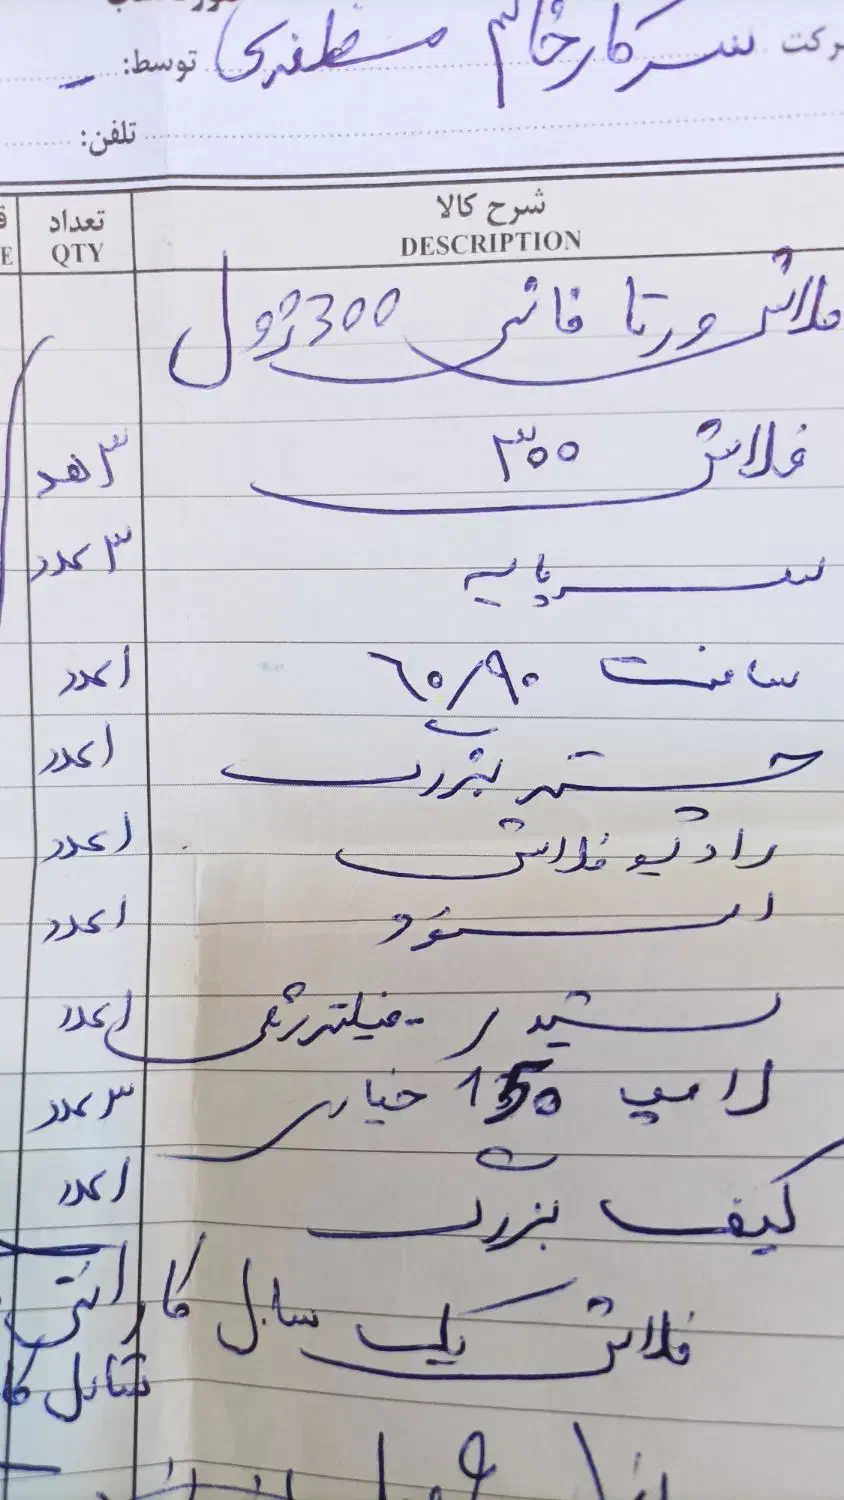 شرکت سرکار خانم مظفری توسط:
تلفن:
شرح کالا تعداد
DESCRIPTION QTY
فلاش ورتا فانی 300 ژول
فلاش ۳۰۰ ۳ عدد
سه پایه ۳ عدد
سافت ۶۰/۹۰ ۱ عدد
چتر بزرگ ۱ عدد
رادیو فلاش ۱ عدد
اسنود ۱ عدد
شیدر - فیلتر رنگی ۱ عدد
لامپ 150 خیاری ۳ عدد
کیف بزرگ ۱ عدد
فلاش یک سال گارانتی